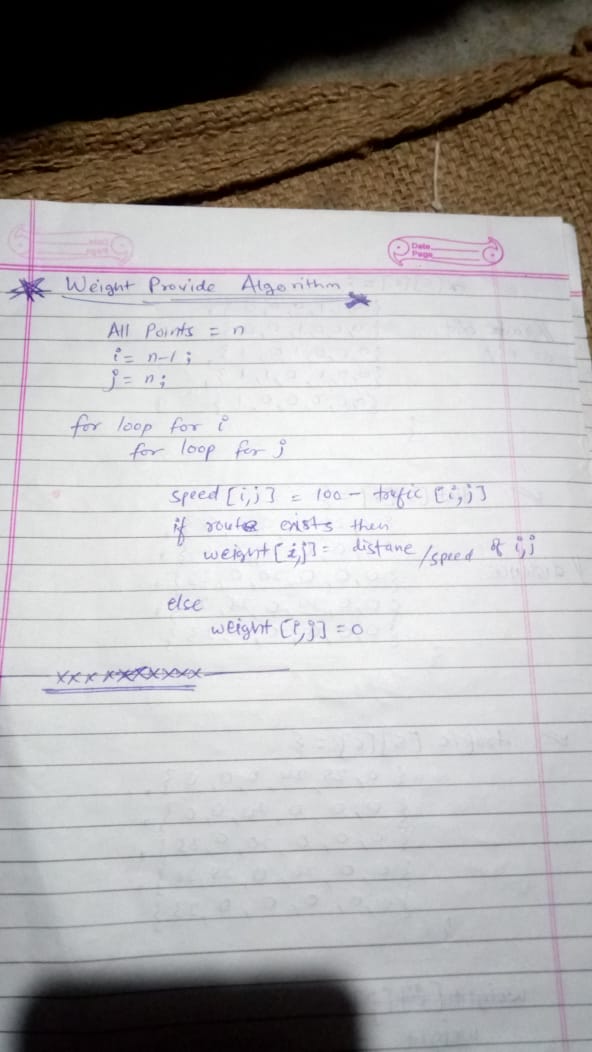 Date
Page
Weight Provide Algorithm
All Points = n
i = n-1 ;
j = n ;
for loop for i
for loop for j
speed [i,j] = 100 - trafic [i,j]
if route exists then
weight [i,j] = distane /speed of i,j
else
weight [i,j] = 0
xxxxxxxxxx